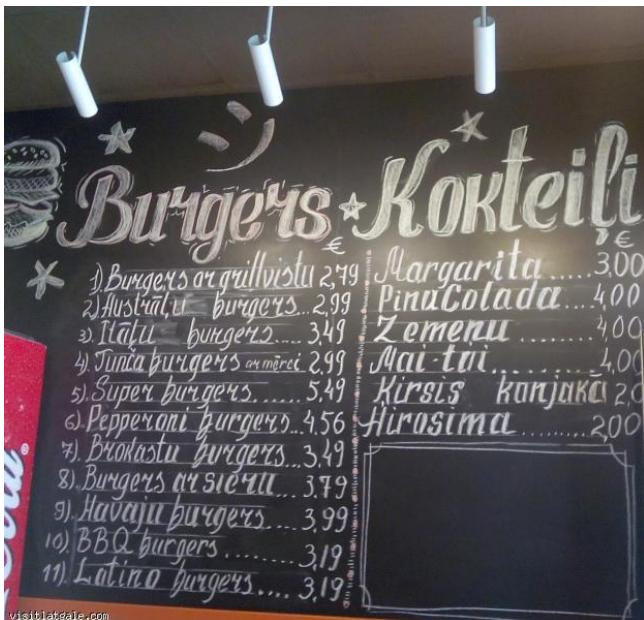 Burgers
€
1) Burgers ar grillvistu 2,79
2) Austrāļu burgers... 2,99
3). Itāļu burgers.... 3,49
4). Tunča burgers ar mērci 2,99
5). Super burgers...... 5,49
6). Pepperoni burgers.. 4.56
7). Brokastu burgers... 3,49
8). Burgers ar sieru ... 3.79
9). Havaju burgers.... 3,99
10). BBQ burgers ........ 3,19
11). Latino burgers.... 3,19
Kokteiļi
€
Margarita..... 3,00
PinaColada.... 4,00
Zemeņu ........ 4,00
Mai-tai........ 4,00
Ķirsis konjakā
Hirosima ........ 2,00
visitlatgale.com